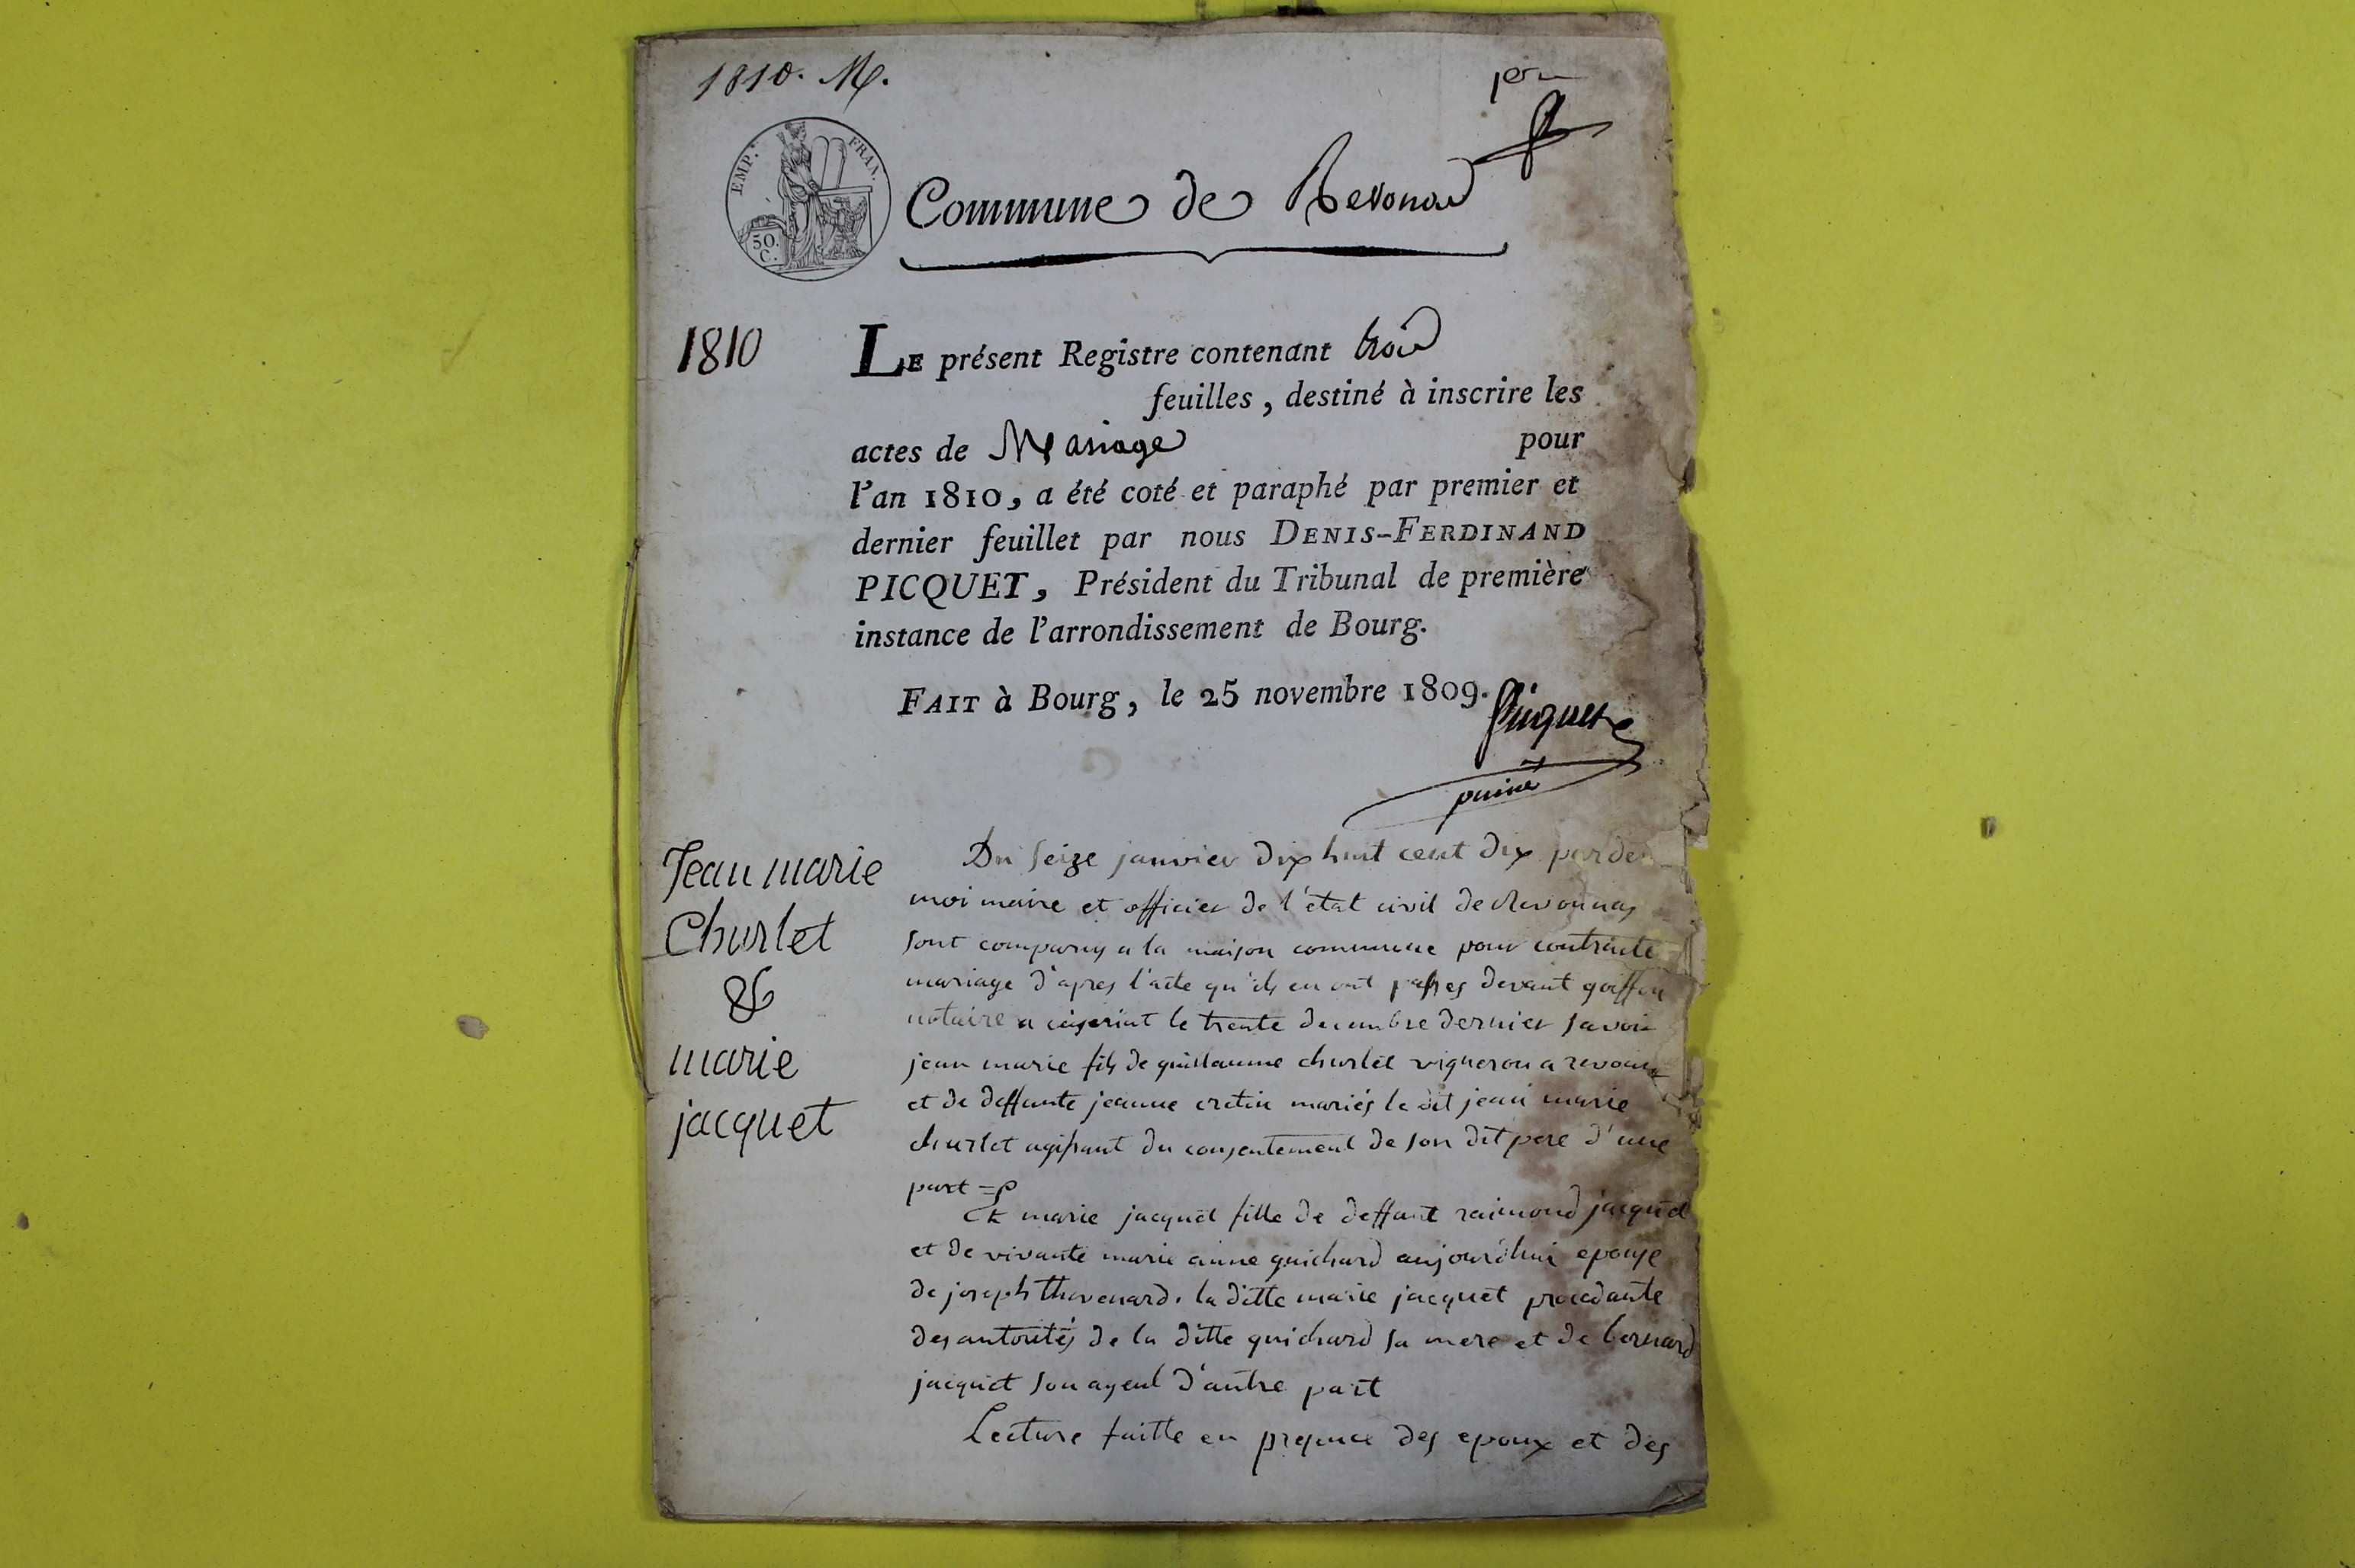 1810. M.
per
EMP. FRAN.
50. C.
Commune de Revonas
1810
LE présent Registre contenant trois
feuilles, destiné à inscrire les
actes de Mariage pour
l'an 1810, a été coté et paraphé par premier et
dernier feuillet par nous DENIS-FERDINAND
PICQUET, Président du Tribunal de première
instance de l'arrondissement de Bourg.
FAIT à Bourg, le 25 novembre 1809.
Picquet
puiné
Jean marie
Churlet
&
marie
jacquet
Du seize janvier dix huit cent dix par de
moi maire et officier de l'état civil de Revonnas
sont comparus a la maison commune pour contracte
mariage d'apres l'acte qu'ils en ont passes devant goiffon
notaire a ceiseriat le trente decembre dernier savoir
jean marie fils de guillaume churlet vigneron a revonnas
et de deffunte jeanne cretin mariés le dit jean marie
churlet agissant du consentement de son dit pere d'une
part =
Et marie jacquet fille de deffunt raimond jacquet
et de vivante marie anne guichard aujourd'hui epouse
de joseph thevenard. la ditte marie jacquet procedante
des autorités de la ditte guichard sa mere et de bernard
jacquet son ayeul d'autre part
Lecture faitte en presence des epoux et des